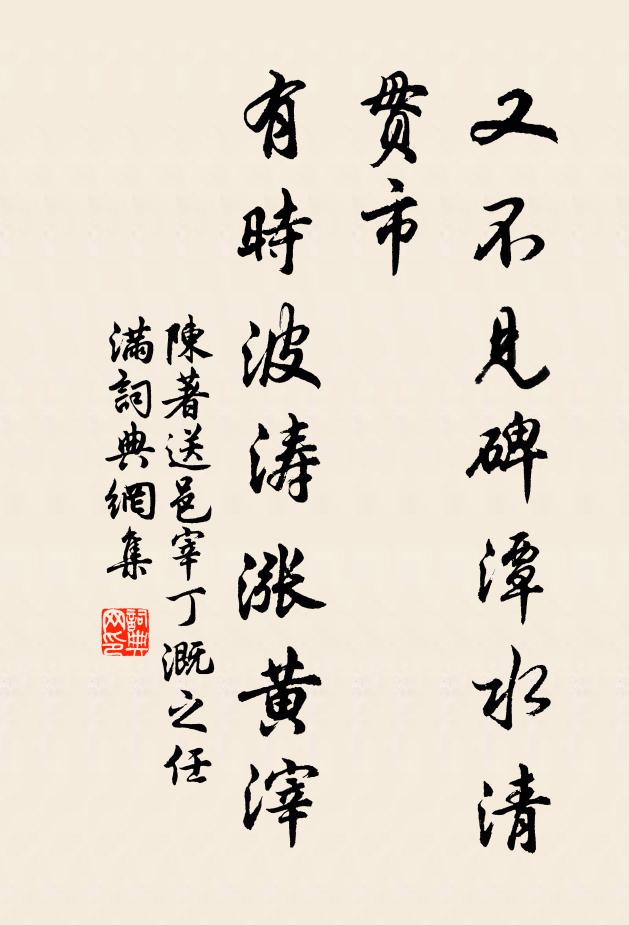 又不見碑潭水清
貫市
有時波濤漲黃滓
陳著送邑宰丁溉之任
滿詞典網集
詞典網印